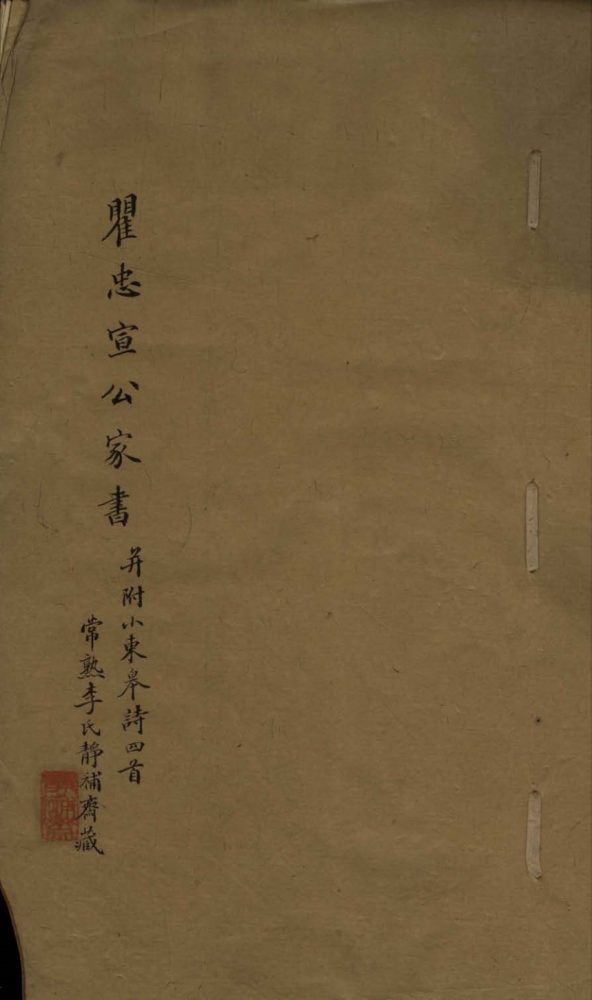 瞿忠宣公家書
并附小東皋詩四首
常熟李氏靜補齋藏